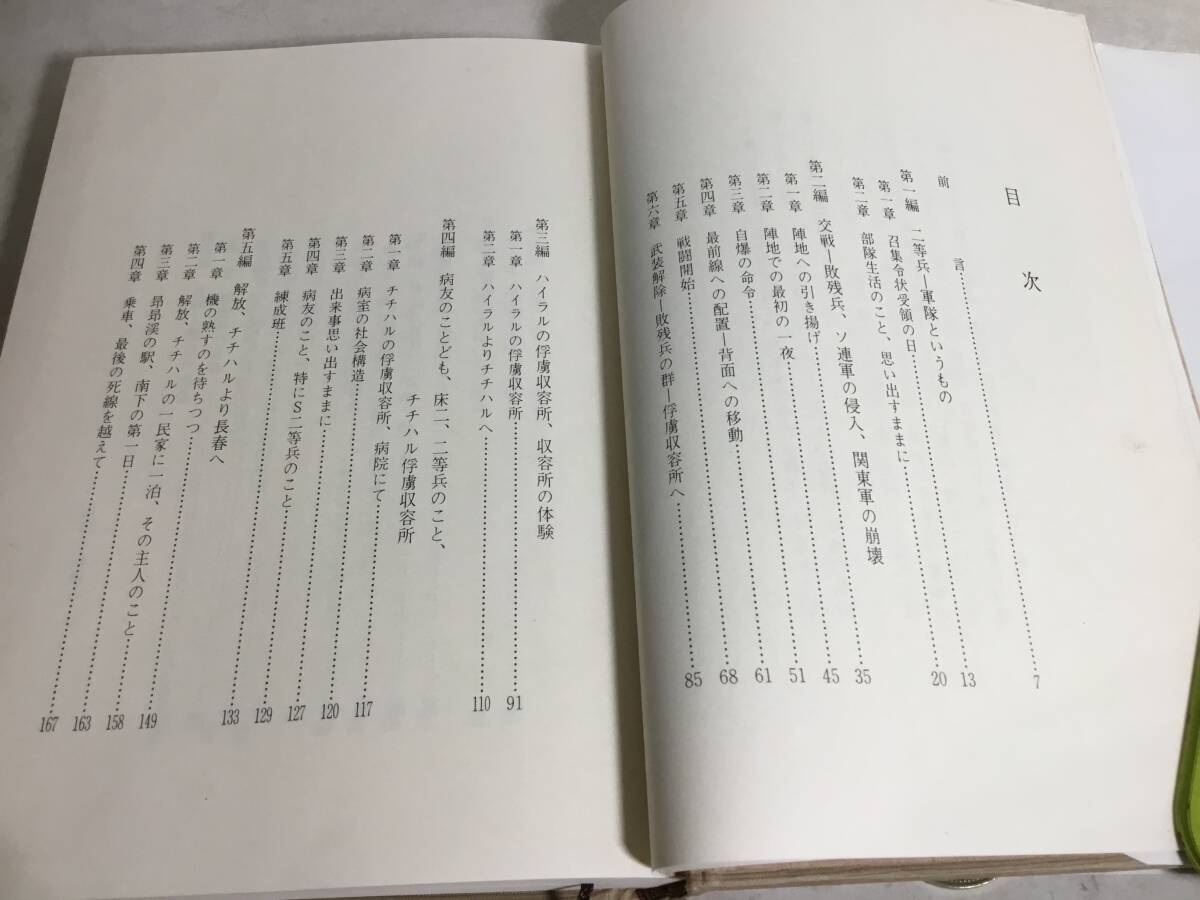 目次
前言……7
第一編 二等兵—軍隊というもの
第一章 召集令状受領の日……13
第二章 部隊生活のこと、思い出すままに……20
第二編 交戦—敗残兵、ソ連軍の侵入、関東軍の崩壊
第一章 陣地への引き揚げ……35
第二章 陣地での最初の一夜……45
第三章 自爆の命令……51
第四章 最前線への配置—背面への移動……61
第五章 戦闘開始……68
第六章 武装解除—敗残兵の群—俘虜収容所へ……85
第三編 ハイラルの俘虜収容所、収容所の体験
第一章 ハイラルの俘虜収容所……91
第二章 ハイラルよりチチハルへ……110
第四編 病友のことども、床二、二等兵のこと、
チチハル俘虜収容所
第一章 チチハルの俘虜収容所、病院にて……117
第二章 病室の社会構造……120
第三章 出来事思い出すままに……127
第四章 病友のこと、特にS二等兵のこと……129
第五章 練成班……133
第五編 解放、チチハルより長春へ
第一章 機の熟すのを待ちつつ……149
第二章 解放、チチハルの一民家に一泊、その主人のこと……158
第三章 昂昂溪の駅、南下の第一日……163
第四章 乗車、最後の死線を越えて……167